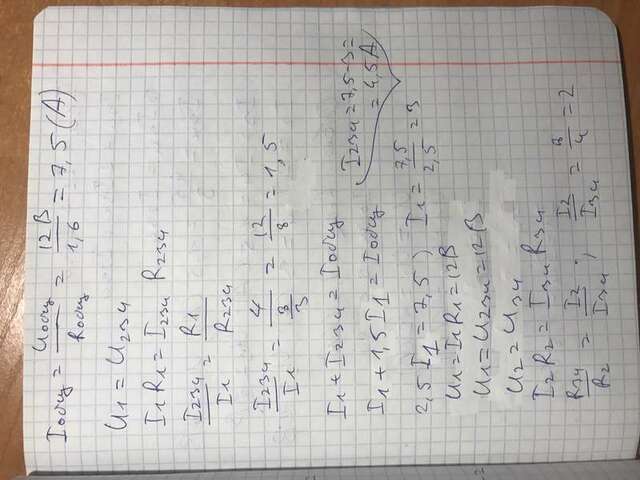 Iобщ = Uобщ / Rобщ = 12В / 1,6 = 7,5 (А)
U1 = U234
I1 R1 = I234 R234
I234 / I1 = R1 / R234
I234 / I1 = 4 / (8/3) = 12 / 8 = 1,5
I1 + I234 = Iобщ
I234 = 7,5 - 3 =
= 4,5А
I1 + 1,5 I1 = Iобщ
2,5 I1 = 7,5 ; I1 = 7,5 / 2,5 = 3
U1 = I1 R1 = 12В
U1 = U234 = 12В
U2 = U34
I2 R2 = I34 R34
R34 / R2 = I2 / I34 ; I2 / I34 = 8 / 4 = 2